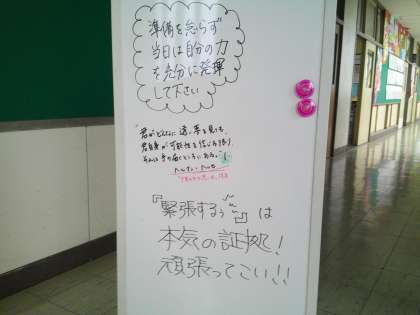 準備を怠らず
当日は自分の力
を充分に発揮
して下さい
君がどんなに遠い夢を見ても、
君自身が可能性を信じる限り、
それは手の届くところにある。
ヘルマン・ヘッセ
『緊張するぅ〜』は
本気の証拠！
頑張ってこい！！